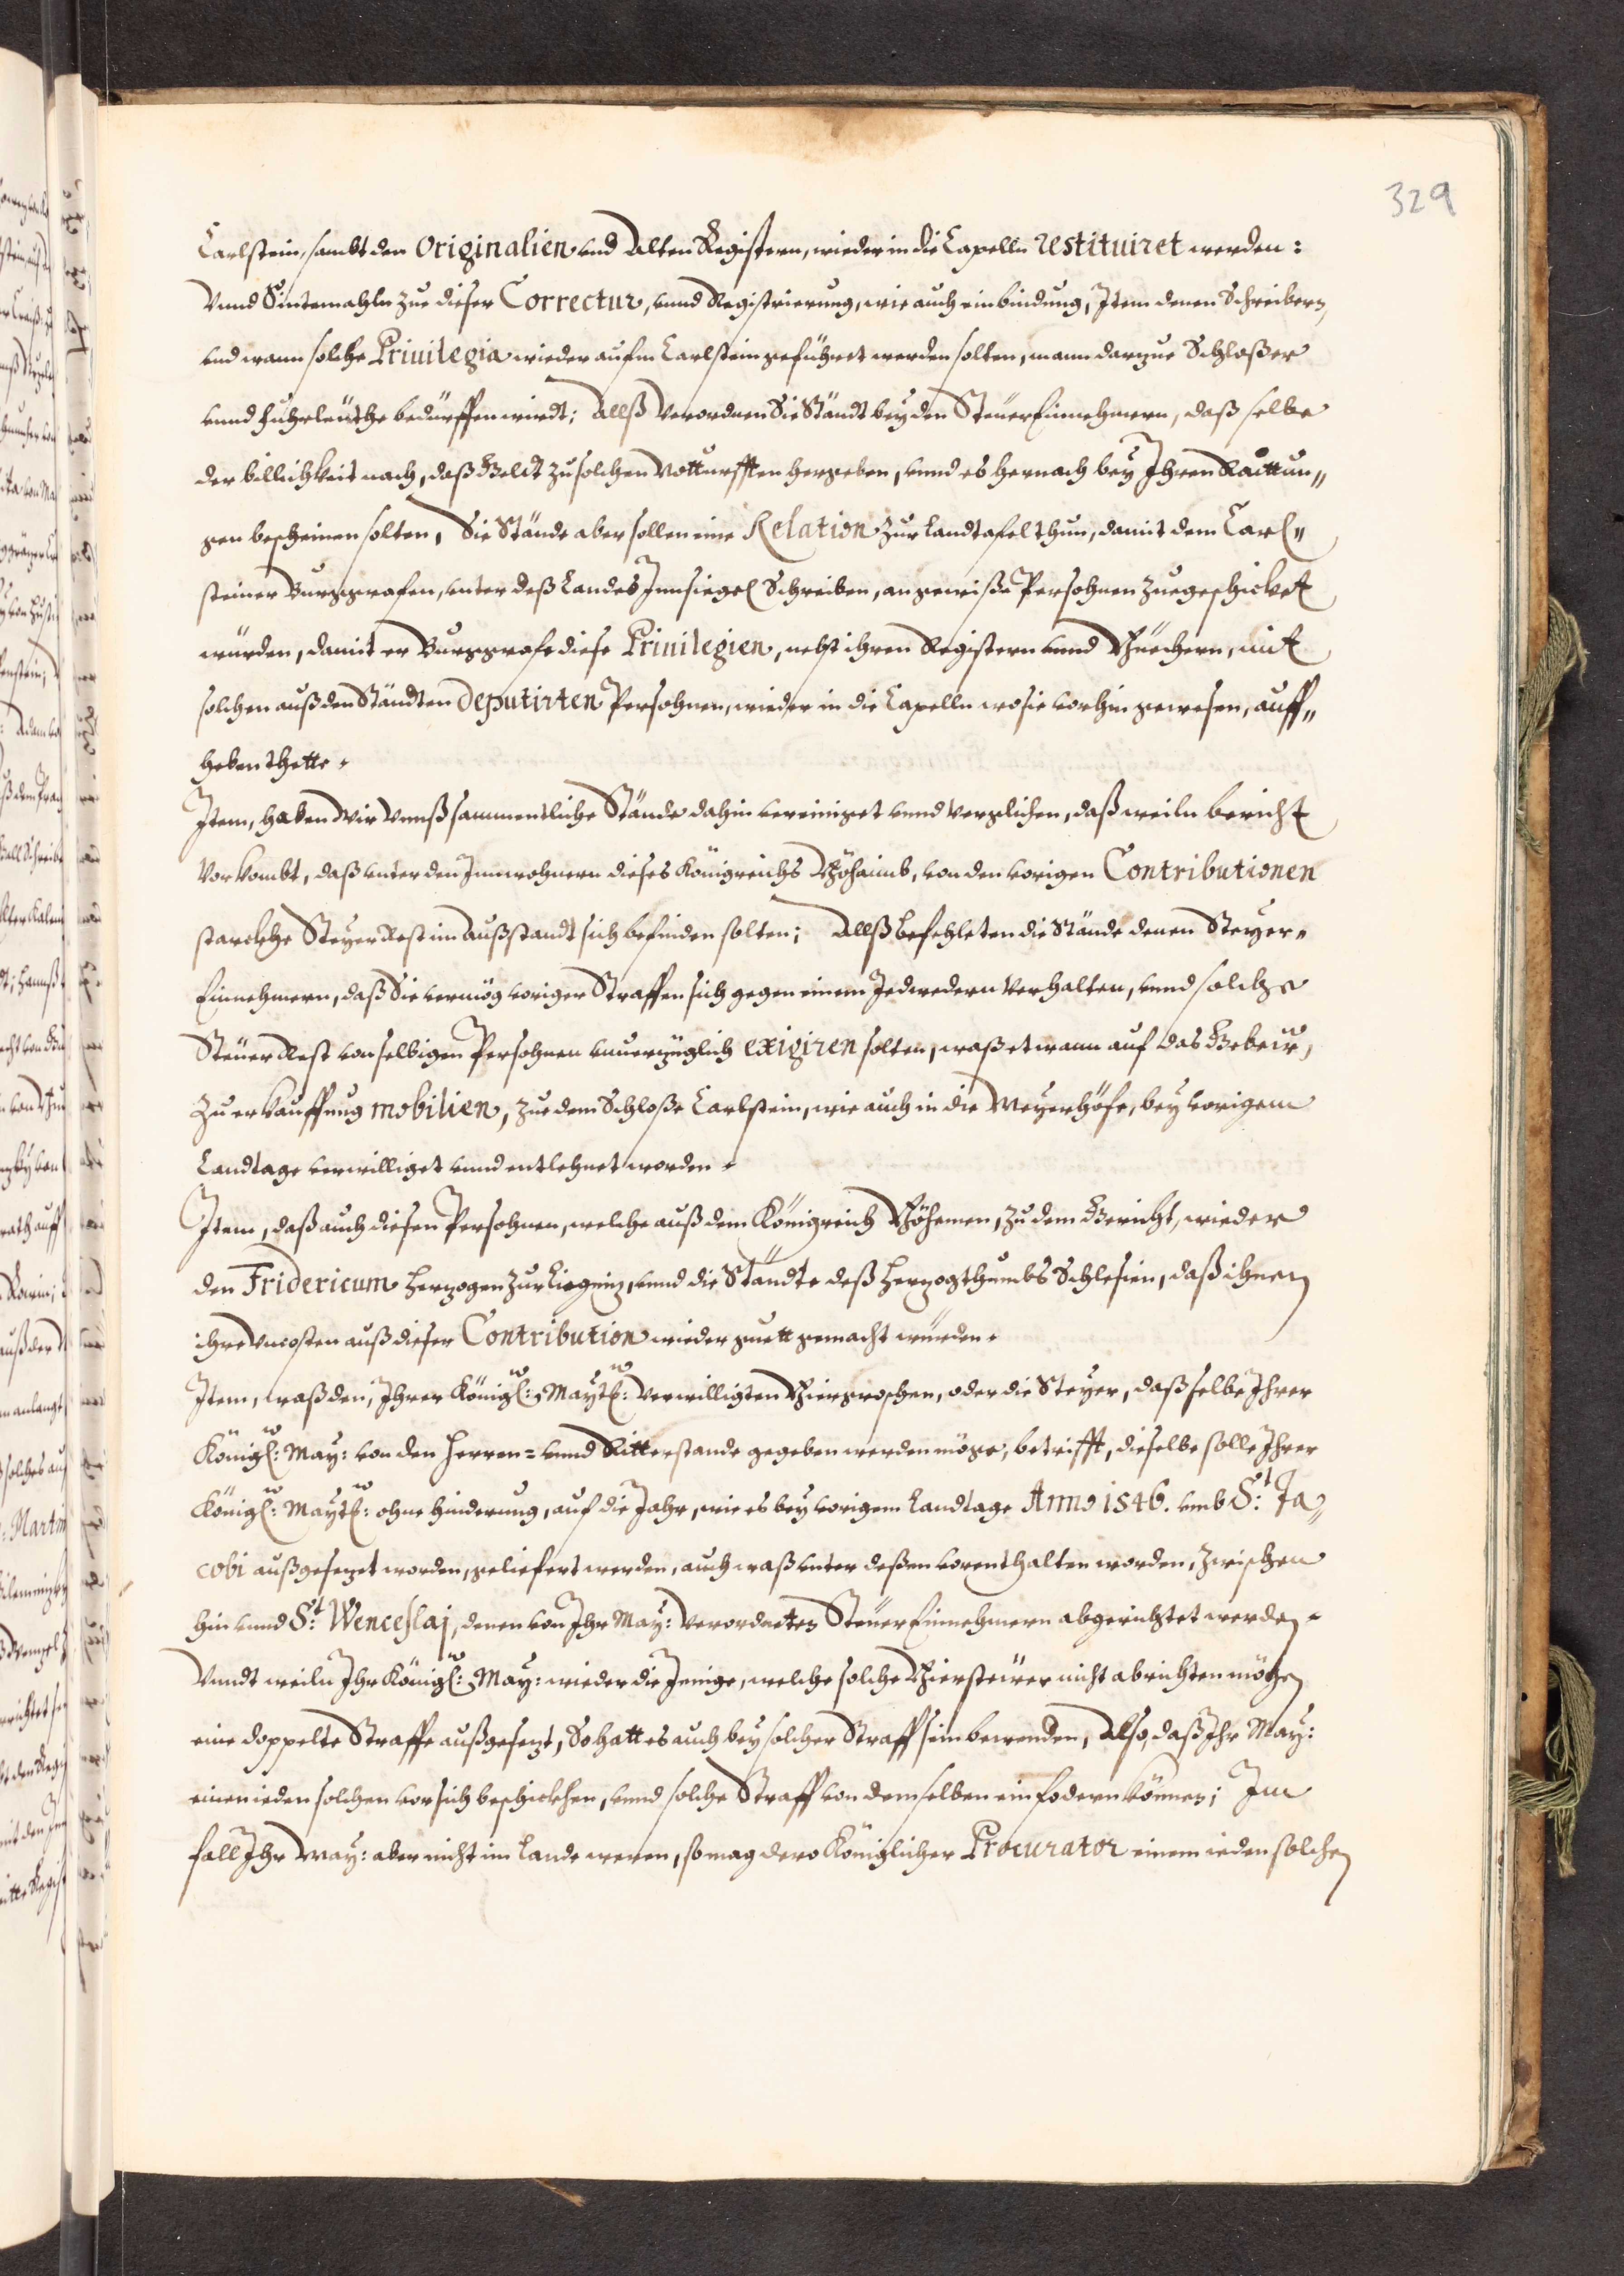 329
Carlstein, sambt den Originalien und Alten Registern, wieder in die Capelln restituiret werden:
Vnnd Sintemahln zue dieser Correctur, unnd Registrierung, wie auch einbindung, Item denen Schreibern,
und wann solche Priuilegia wieder aufm Carlstein geführet werden solten, mann darzue Schloßer
unnd fuhrleüthe bedürffen wirdt; Allß Verordnen Sie Ständt bey den SteüerEinnehmern, daß selbe
der billichkeit nach, daß Geldt zu solchen Notturfften hergeben, unnd es hernach bey Ihren Raittun„
gen bescheinen solten, Die Stände aber sollen eine Relation zur Landtafel thun, damit dem Carl„
steiner Burggrafen, unter deß Landes Innsiegel Schreiben, an gewiße Persohnen zuegeschicket
würden, damit er Burggrafe diese Priuilegien, nebst ihren Registern unnd Büechern, mit
solchen auß den Ständten deputirten Persohnen, wieder in die Capelln wo sie vorhin gewesen, auff„
heben thette.
Item, haben Wir Vnnß sammentliche Stände dahin vereiniget unnd verglichen, daß weiln bericht
Vorkombt, daß unter den Innwohnern dieses Königreichs Böhaimb, von den vorigen Contributionen
starckhe Steyer Rest im Außstandt sich befinden solten; Allß befehleten die Stände denen Steyer„
Einnehmern, daß Sie vermög voriger Straffen sich gegen einem Jedwedern Verhalten, unnd solche
Steüer Rest von selbigen Persohnen unuerzüglich exigiren solten, waß etwann auf das Gebeür,
Zu erkauffung mobilien, zue dem Schloße Carlstein, wie auch in die Meyerhöfe, bey vorigem
Landtage verwilliget unnd entlehnet worden.
Item, daß auch diesen Persohnen, welche auß dem Königreich Böhemen, zu dem Gericht, wieder
den Fridericum Herzogen zur Liegniz, unnd die Ständte deß Herzogthumbs Schlesien, daß ihnen
ihre Vncosten auß dieser Contribution wieder guett gemacht würden.
Item, waß den, Ihrer Königl: Maytt: verwilligten Biergroschen, oder die Steyer, daß selbe Ihrer
Königl: May: von den Herren= unnd Ritterstande gegeben werden möge, betrifft, dieselbe solle Ihrer
Königl: Maytt: ohne hinderung, auf die Jahr, wie es bey vorigem Landtage Anno 1546. umb St: Ja„
cobi außgesezet worden, geliefert werden, auch waß unter deßen vorenthalten worden, zwischen
hin unnd St: Wenceslaj, denen von Ihr May: verordneten SteüerEinnehmern abgerichtet werden.
Vnndt weiln Ihr Königl: May: wieder die Jenige, welche solche Biersteürer nicht abrichten möchen
eine doppelte Straffe außgesezt, So hatt es auch bey solcher Straff sein bewenden, Also, daß Ihr May:
einen ieden solchen vor sich beschickhen, unnd solche Straff von demselben ein fodern können; Im
fall Ihr May: aber nicht im Lande weren, so mag dero Königlicher Procurator einem ieden solchen